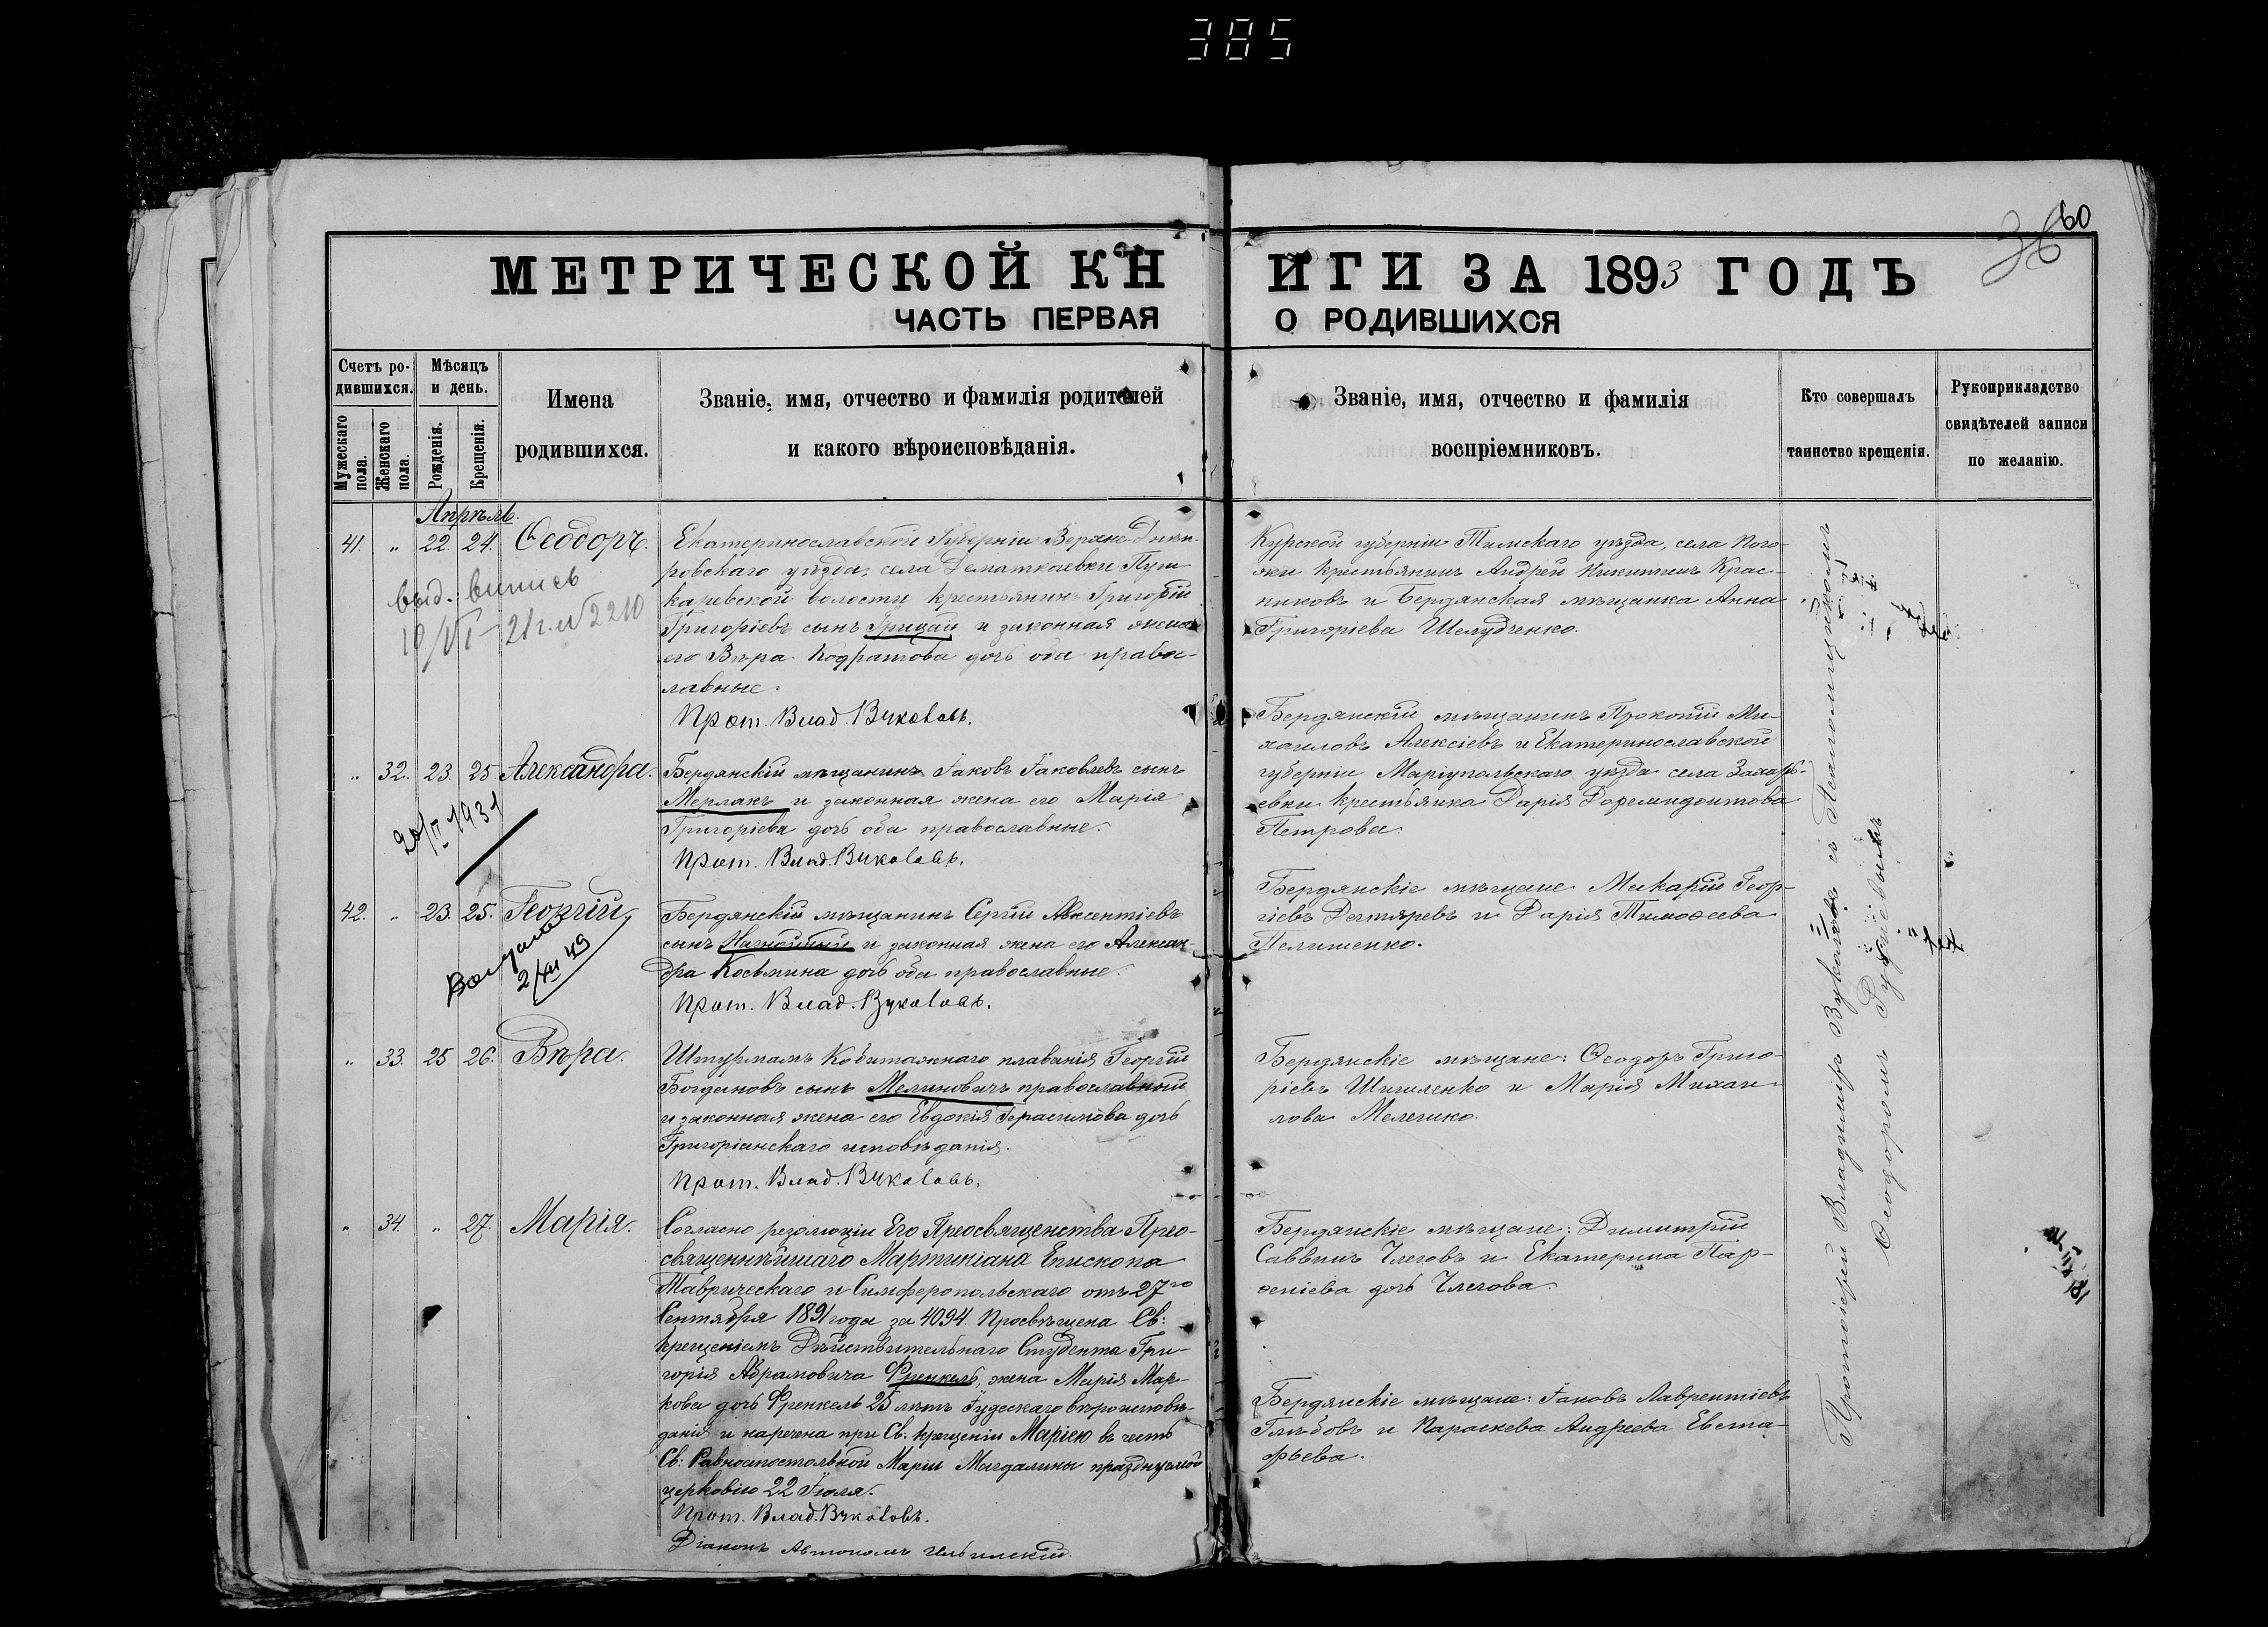 385
60
36
МЕТРИЧЕСКОЙ КН
ИГИ ЗА 1893 ГОДЪ
ЧАСТЬ ПЕРВАЯ
О РОДИВШИХСЯ
Счетъ ро-
дившихся.
Мужескаго
пола.
Женскаго
пола.
Мѣсяцъ
и день.
Рожденія.
Крещенія.
Имена
родившихся.
Званіе, имя, отчество и фамилія родителей
и какого вѣроисповѣданія.
Званіе, имя, отчество и фамилія
воспріемниковъ.
Кто совершалъ
таинство крещенія.
Рукоприкладство
свидѣтелей записи
по желанію.
Апрѣль.
41. " 22. 24. Ѳеодоръ.
выд. выпись
10/VI - 21 г. № 2210
Екатеринославской Губерніи Верхне-Днѣп-
ровскаго уѣзда, села Пуш-
каревской волости крестьянинъ Григорій
Григорьевъ сынъ Грицай и законная жена
его Вѣра Кодратова дочь оба правос-
лавные.
Прот. Влад. Вуколовъ.
Курской губерніи Тимскаго уѣзда, села Пого-
жи крестьянинъ Андрей Никитинъ Крас-
никовъ и Бердянская мѣщанка Анна
Григоріева Шелудченко.
" 32. 23. 25. Александра.
20/II 1931
Бердянскій мѣщанинъ Іаковъ Іаковлевъ сынъ
Мерлакъ и законная жена его Марія
Григоріева дочь оба православные.
Прот. Влад. Вуколовъ.
Бердянскій мѣщанинъ Прокопій Ми-
хаиловъ Алексіевъ и Екатеринославской
губерніи Маріупольскаго уѣзда села Захарь-
евки крестьянка Дарія
Петрова.
42. " 23. 25. Георгій.
2/XII 49
Бердянскій мѣщанинъ Сергій Авксентіевъ
сынъ Нагнойный и законная жена его Алексан-
дра Косьмина дочь оба православные.
Прот. Влад. Вуколовъ.
Бердянскіе мѣщане Макарій Геор-
гіевъ Дегтяревъ и Дарія Тимоѳеева
Пелишенко.
" 33. 25 26. Вѣра.
Штурманъ Каботажнаго плаванія Георгій
Богдановъ сынъ Мелиновичъ православный
и законная жена его Евдокія Герасимова дочь
Григоріанскаго исповѣданія.
Прот. Влад. Вуколовъ.
Бердянскіе мѣщане: Ѳеодоръ Григо-
ріевъ Шигиленко и Марія Михаи-
лова Мелешко.
" 34. " 27. Марія.
Согласно резолюціи Его Преосвященства Прео-
священнѣйшаго Мартиніана Епископа
Таврическаго и Симферопольскаго отъ 27го
Сентября 1891 года за 4094. Просвѣщена Св:
крещеніемъ Дѣйствительнаго Студента Гри-
горія Абрамовича Френкель, жена Марія Мар-
кова дочь Френкель 25 лѣтъ Іудейскаго вѣроисповѣ-
данія и наречена при Св: крещеніи Маріею въ честь
Св: Равноапостольной Маріи Магдалины празднуемой
церковію 22 Іюля.
Прот. Влад. Вуколовъ.
Діаконъ Автономъ Ильинскій.
Бердянскіе мѣщане: Димитрій
Саввинъ Члеговъ и Екатерина Пар-
ѳеніева дочь Члегова.
Бердянскіе мѣщане: Іаковъ Лаврентіевъ
Глѣбовъ и Параскева Андреева Евста-
фьева.
Протоіерей Владиміръ Вуколовъ съ Псаломщикомъ
Ѳеодоромъ